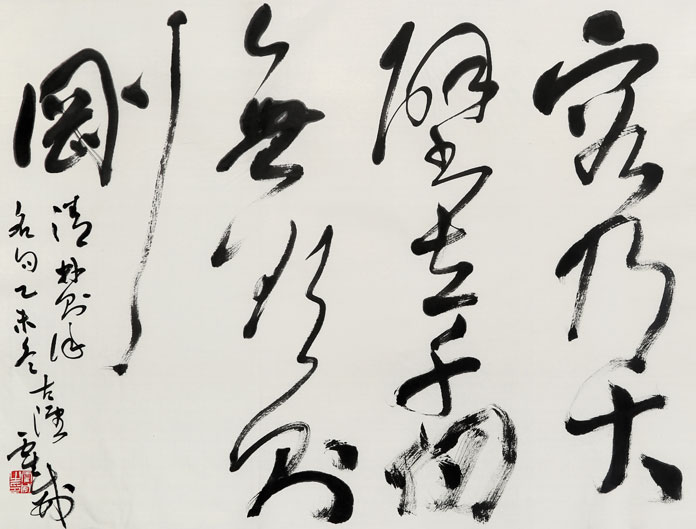 容乃大
壁立千仞
無欲則
剛
清林則徐
名句乙未冬古